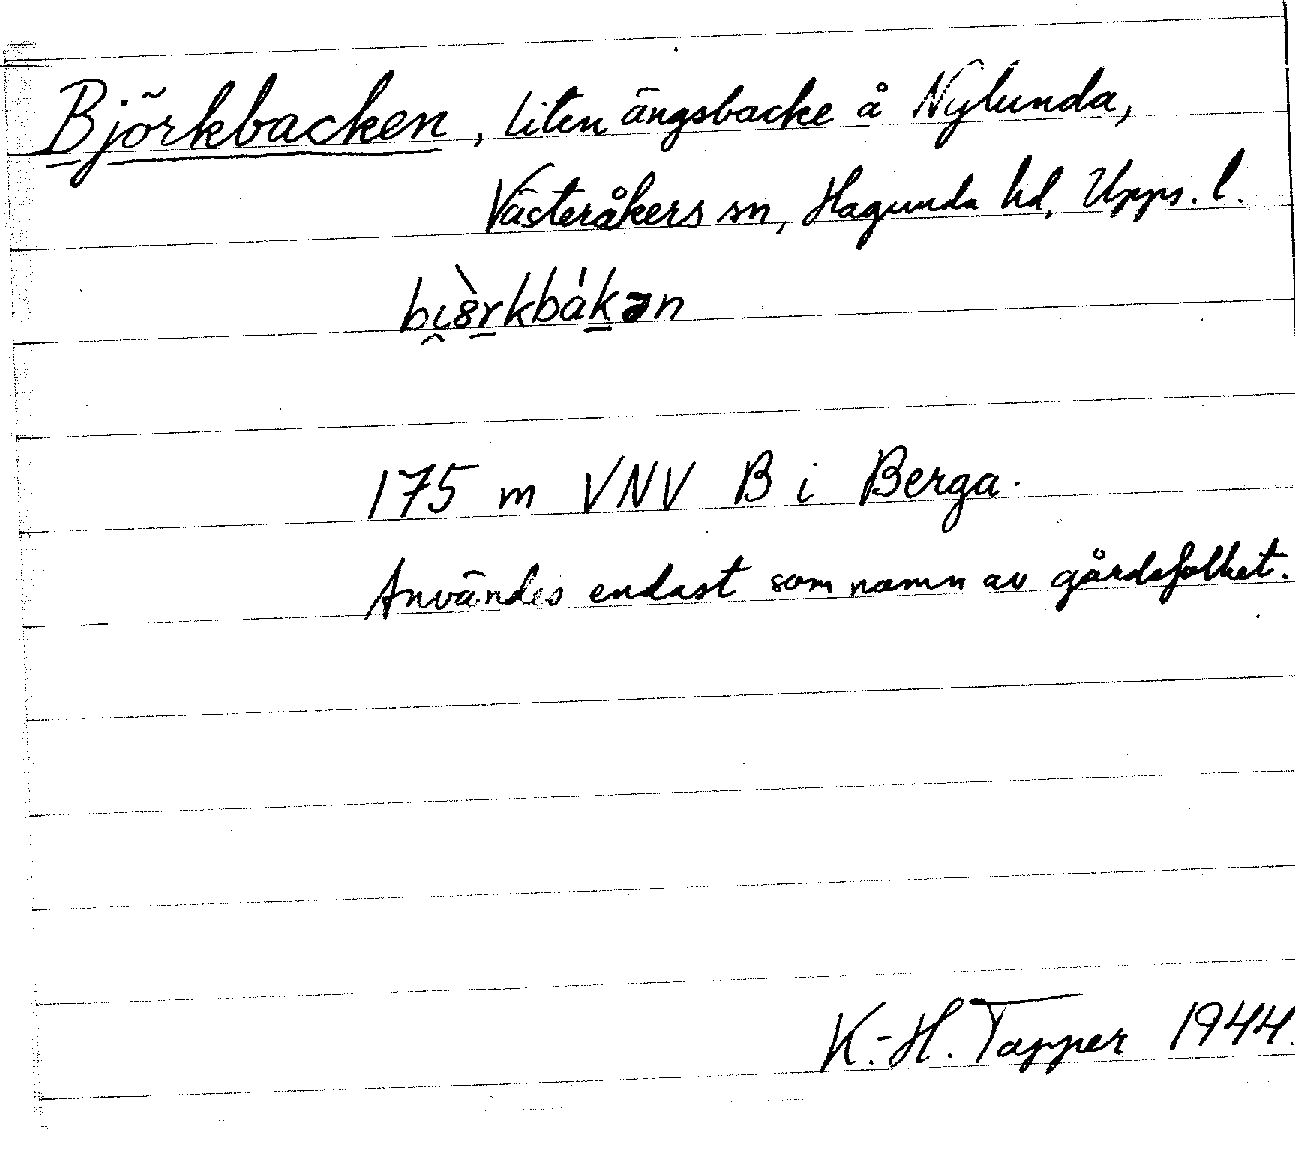 Björkbacken, liten ängsbacke å Nylunda,
Västeråkers sn, Hagunda hd, Upps. l.
bi̯ȍ̀r̲kbák̲ən
175 m VNV B i Berga.
Användes endast som namn av gårdsfolket.
K.-H. Tapper 1944.